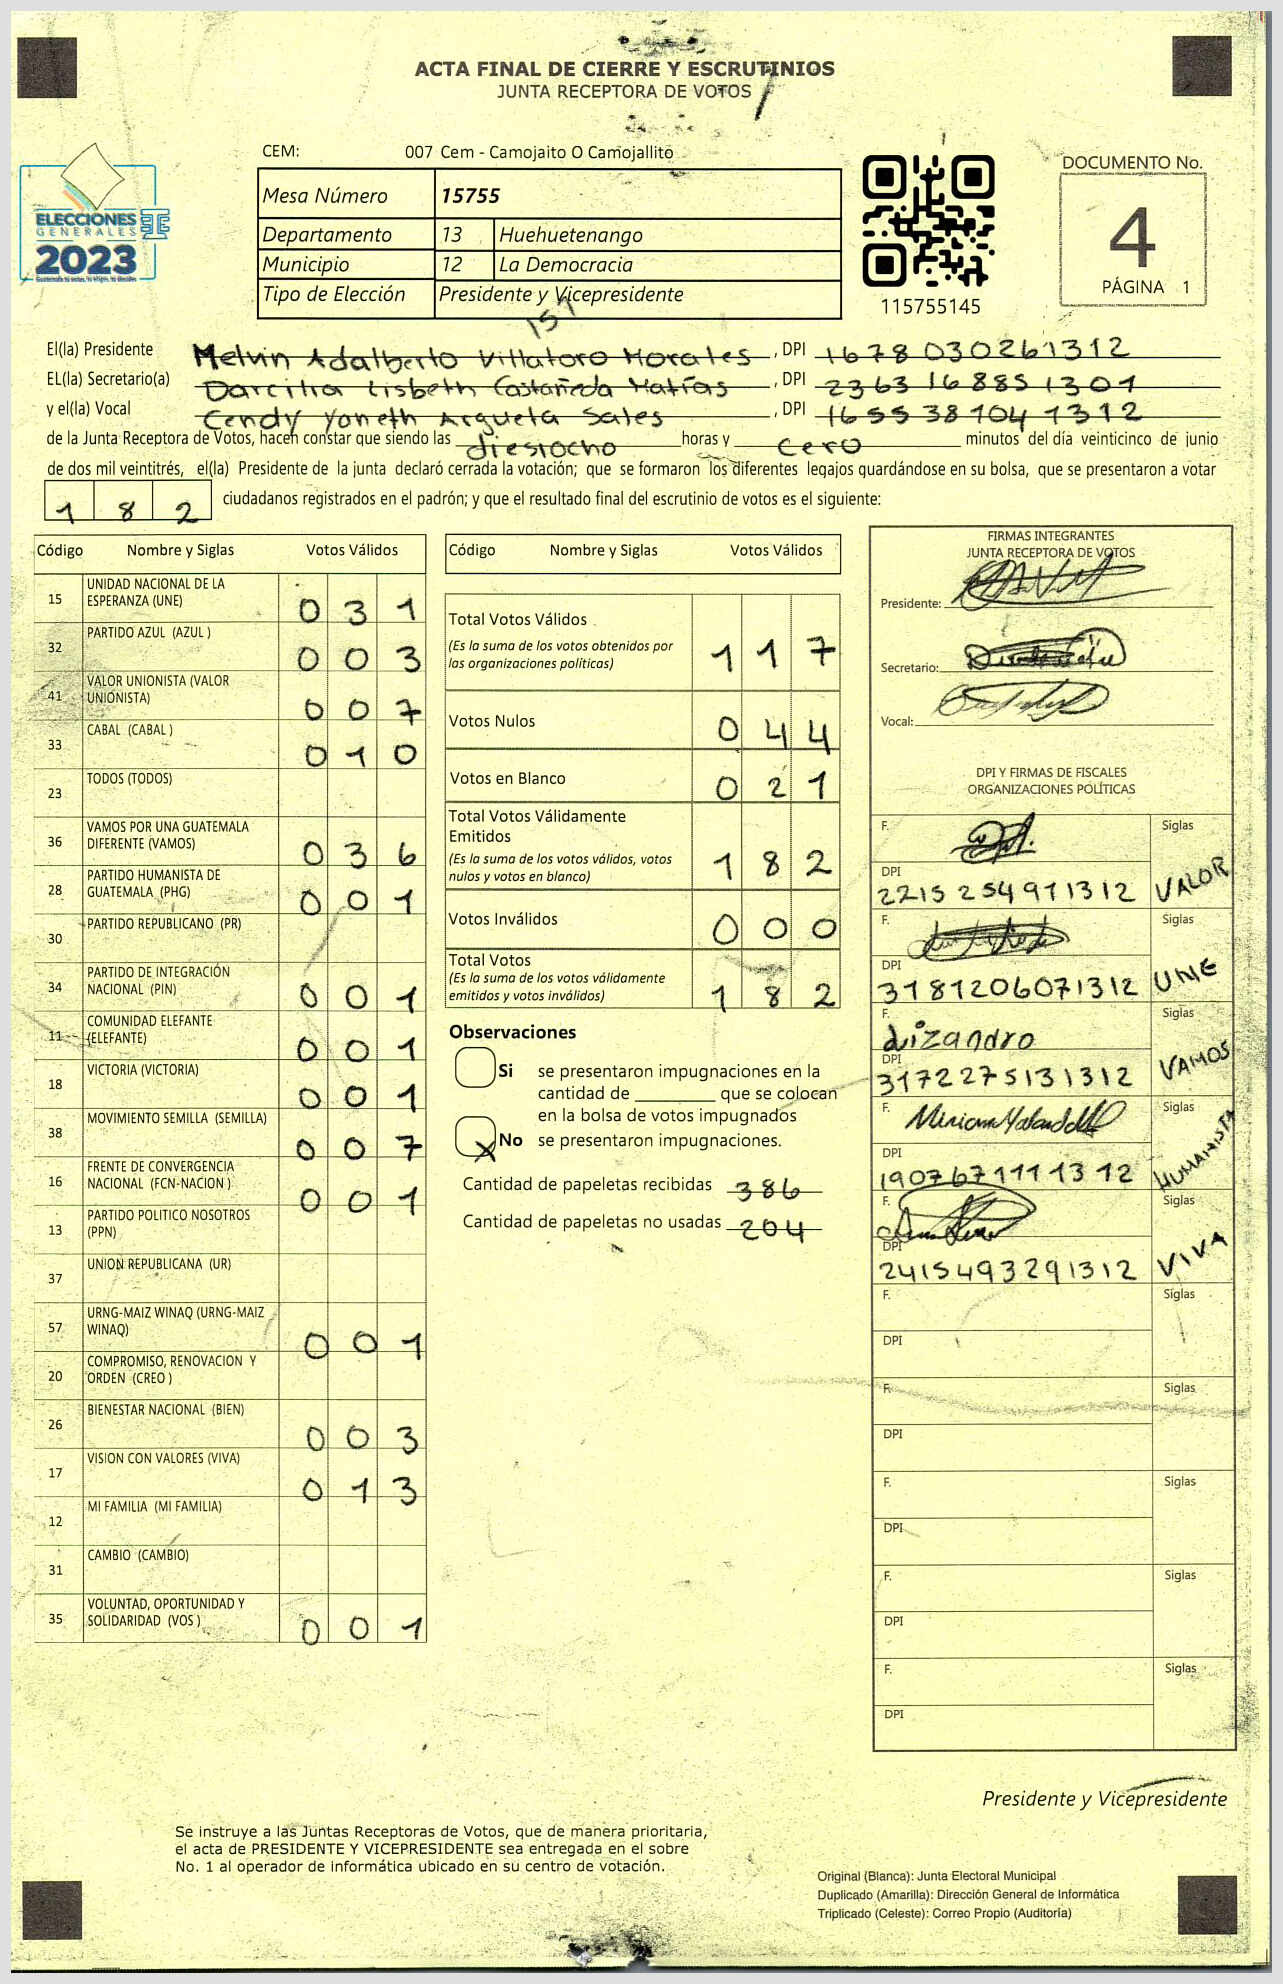 ACTA FINAL DE CIERRE Y ESCRUTINIOS
JUNTA RECEPTORA DE VOTOS
CEM: 007 Cem - Camojaito O Camojallito
Mesa Número 15755
Departamento 13 Huehuetenango
Municipio 12 La Democracia
Tipo de Elección Presidente y Vicepresidente
ELECCIONES
GENERALES
2023
115755145
DOCUMENTO No.
4
PÁGINA 1
157
El(la) Presidente Melvin Adalberto Villatoro Morales , DPI 1678 030261312
EL(la) Secretario(a) Darcilia Lisbeth Castañeda Matías , DPI 2363 16885 1301
y el(la) Vocal Cendy Yoneth Argueta Sales , DPI 1655 38104 1312
de la Junta Receptora de Votos, hacen constar que siendo las diesiocho horas y cero minutos del día veinticinco de junio
de dos mil veintitrés, el(la) Presidente de la junta declaró cerrada la votación; que se formaron los diferentes legajos guardándose en su bolsa, que se presentaron a votar
1 8 2 ciudadanos registrados en el padrón; y que el resultado final del escrutinio de votos es el siguiente:
Código Nombre y Siglas Votos Válidos
15 UNIDAD NACIONAL DE LA ESPERANZA (UNE) 0 3 1
32 PARTIDO AZUL (AZUL ) 0 0 3
41 VALOR UNIONISTA (VALOR UNIONISTA) 0 0 7
33 CABAL (CABAL ) 0 1 0
23 TODOS (TODOS)
36 VAMOS POR UNA GUATEMALA DIFERENTE (VAMOS) 0 3 6
28 PARTIDO HUMANISTA DE GUATEMALA (PHG) 0 0 1
30 PARTIDO REPUBLICANO (PR)
34 PARTIDO DE INTEGRACIÓN NACIONAL (PIN) 0 0 1
11 COMUNIDAD ELEFANTE (ELEFANTE) 0 0 1
18 VICTORIA (VICTORIA) 0 0 1
38 MOVIMIENTO SEMILLA (SEMILLA) 0 0 7
16 FRENTE DE CONVERGENCIA NACIONAL (FCN-NACION ) 0 0 1
13 PARTIDO POLITICO NOSOTROS (PPN)
37 UNION REPUBLICANA (UR)
57 URNG-MAIZ WINAQ (URNG-MAIZ WINAQ) 0 0 1
20 COMPROMISO, RENOVACION Y ORDEN (CREO )
26 BIENESTAR NACIONAL (BIEN) 0 0 3
17 VISION CON VALORES (VIVA) 0 1 3
12 MI FAMILIA (MI FAMILIA)
31 CAMBIO (CAMBIO)
35 VOLUNTAD, OPORTUNIDAD Y SOLIDARIDAD (VOS ) 0 0 1
Código Nombre y Siglas Votos Válidos
Total Votos Válidos
(Es la suma de los votos obtenidos por las organizaciones políticas) 1 1 7
Votos Nulos 0 4 4
Votos en Blanco 0 2 1
Total Votos Válidamente Emitidos
(Es la suma de los votos válidos, votos nulos y votos en blanco) 1 8 2
Votos Inválidos 0 0 0
Total Votos
(Es la suma de los votos válidamente emitidos y votos inválidos) 1 8 2
Observaciones
Si se presentaron impugnaciones en la
cantidad de ________ que se colocan
en la bolsa de votos impugnados
X No se presentaron impugnaciones.
Cantidad de papeletas recibidas 386
Cantidad de papeletas no usadas 204
FIRMAS INTEGRANTES
JUNTA RECEPTORA DE VOTOS
Presidente:
Secretario:
Vocal:
DPI Y FIRMAS DE FISCALES
ORGANIZACIONES POLÍTICAS
F. Siglas
DPI 2215 254911312 VALOR
F. Siglas
DPI 3181206071312 UNE
F. Lizandro Siglas
DPI 3172275131312 VAMOS
F. Siglas
DPI 1907671111312 HUMANISTA
F. Siglas
DPI 2415493291312 VIVA
F. Siglas
DPI
F. Siglas
DPI
F. Siglas
DPI
F. Siglas
DPI
F. Siglas
DPI
Presidente y Vicepresidente
Se instruye a las Juntas Receptoras de Votos, que de manera prioritaria,
el acta de PRESIDENTE Y VICEPRESIDENTE sea entregada en el sobre
No. 1 al operador de informática ubicado en su centro de votación.
Original (Blanca): Junta Electoral Municipal
Duplicado (Amarilla): Dirección General de Informática
Triplicado (Celeste): Correo Propio (Auditoría)